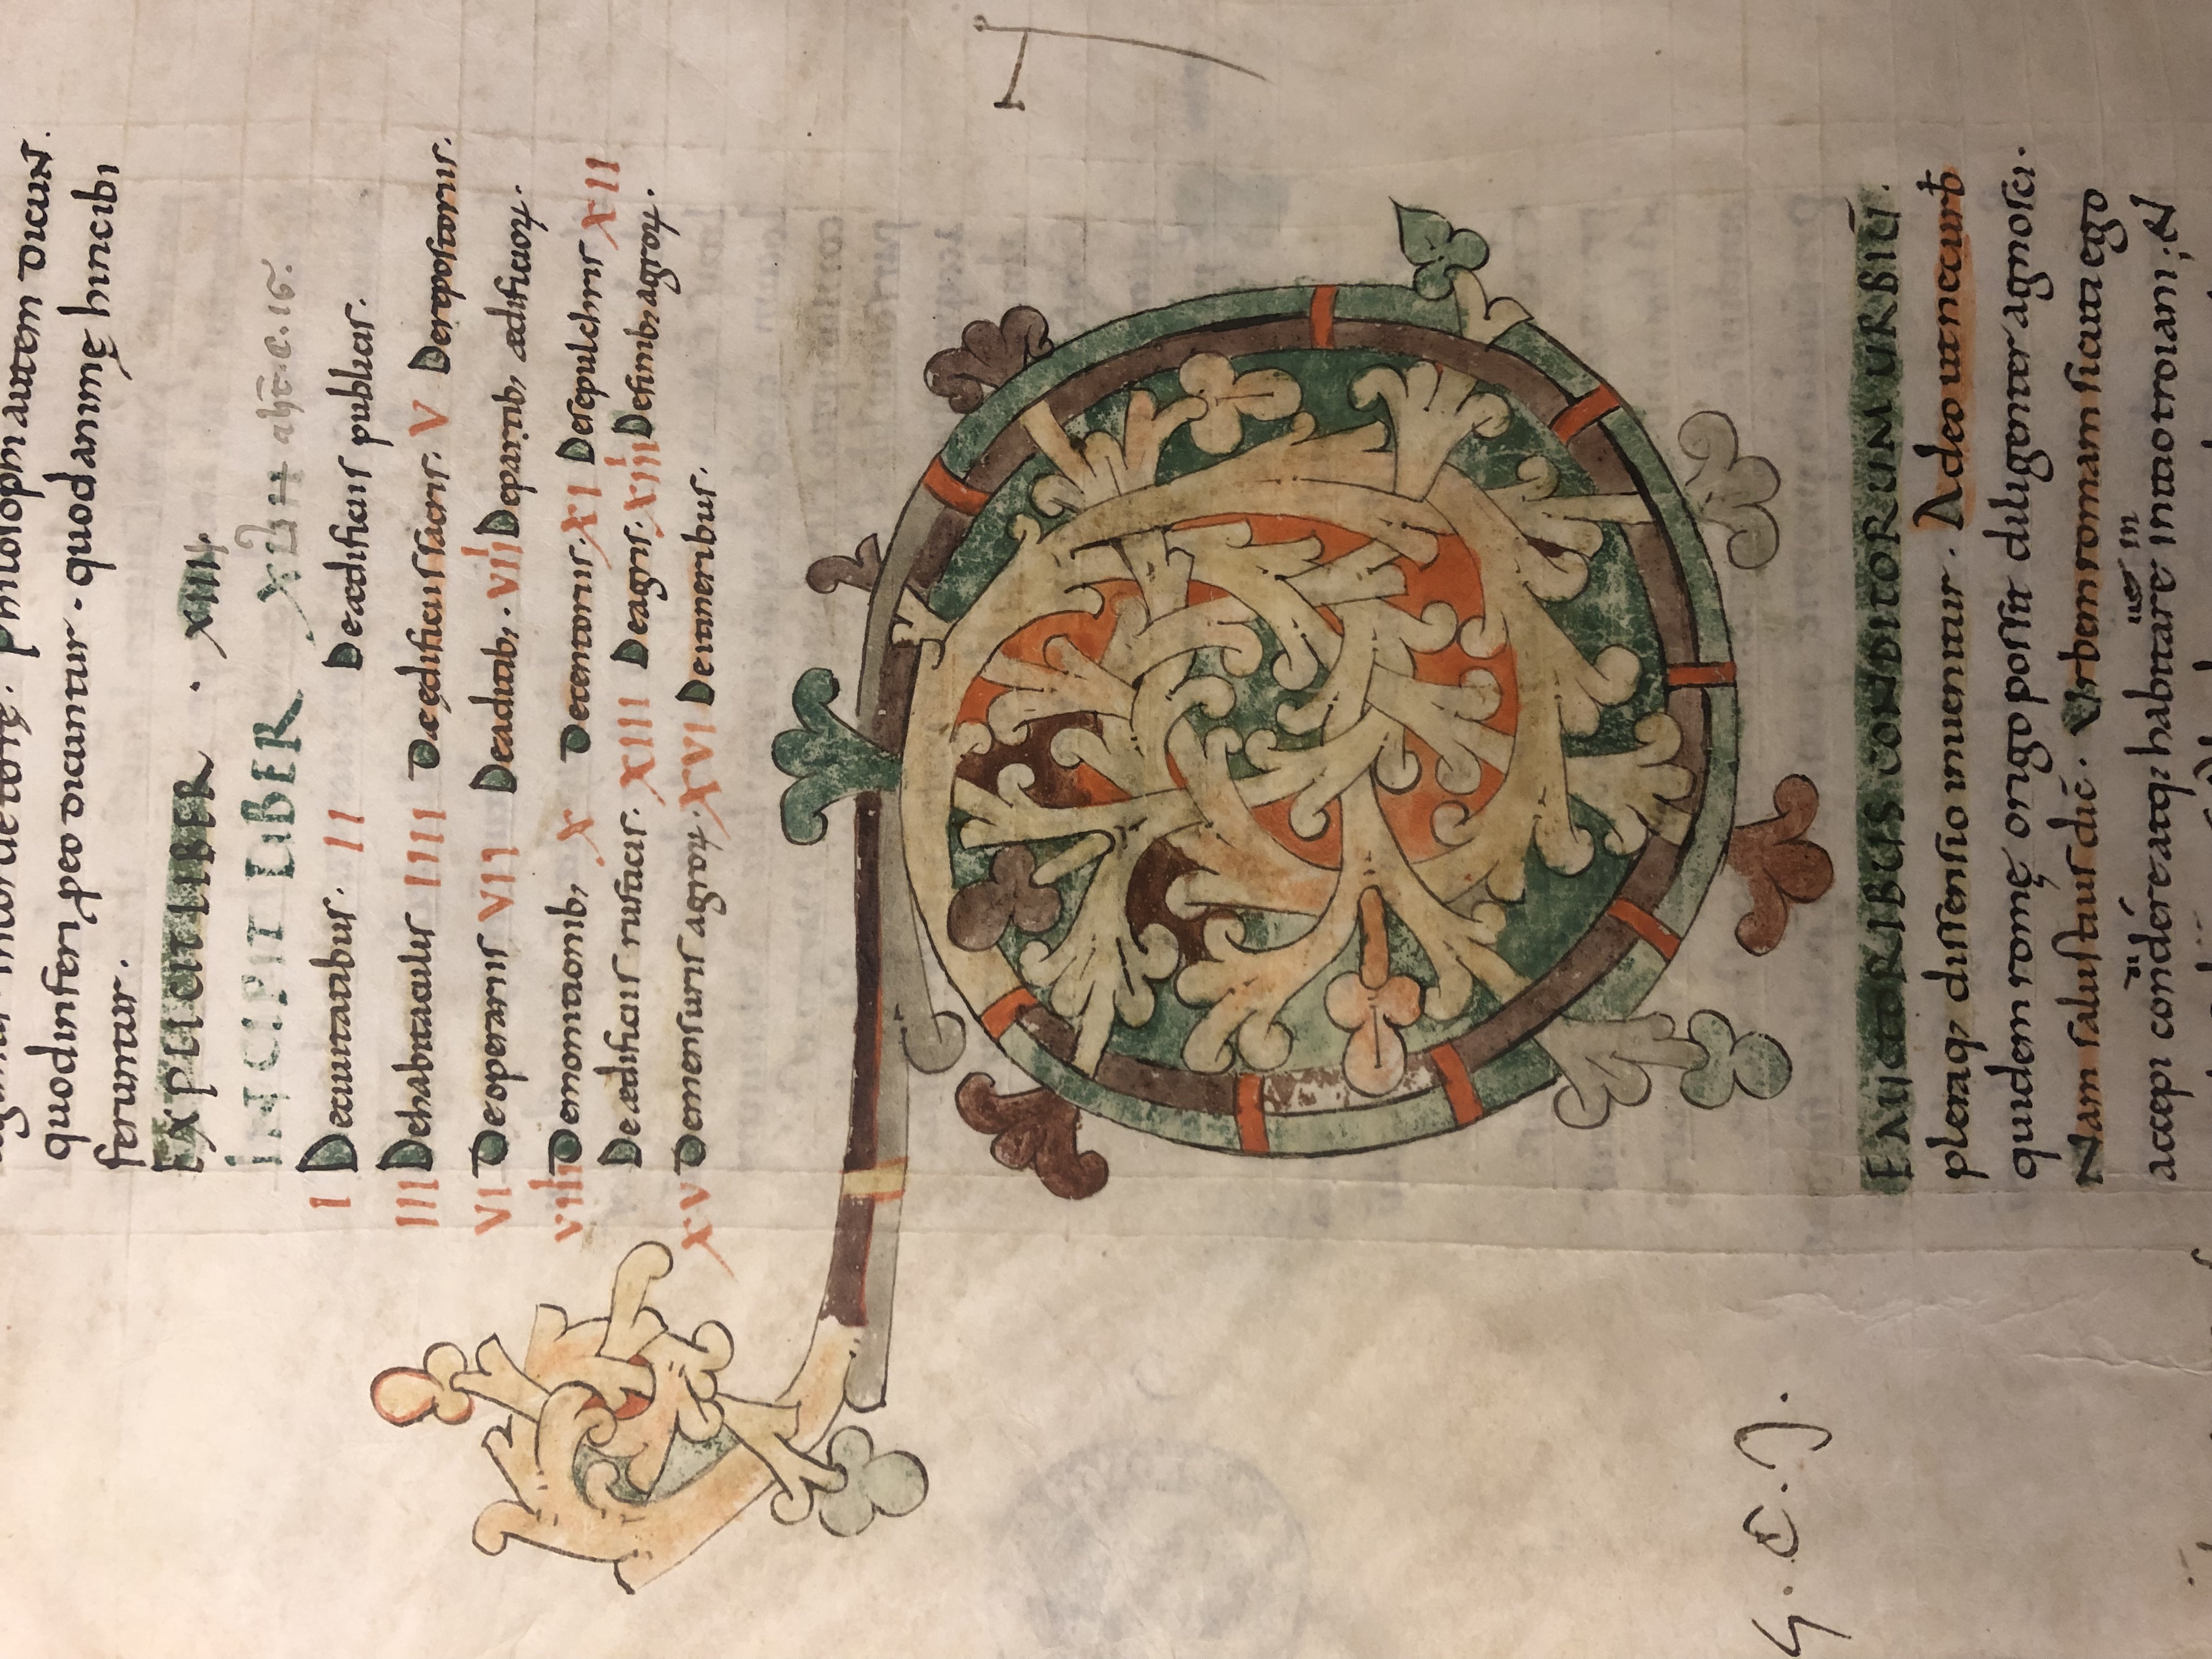 quod inferi p eo dicuntur · quod animę hinc ibi
feruntur .
EXPLICIT LIBER · XIIII.
INCIPIT LIBER XV
I De ciuitatibus . II De ædificiis publicis .
III De habitaculis IIII De ędificiis sacris . V De repositoriis .
VI De operariis VII De aditib; . VIII De partib; ædificiorꝝ .
VIIII De munitionib; X De tentoriis . XI De sepulchris XII
De ædificiis rusticis . XIII De agris . XIIII De finib; agrorꝝ .
XV De mensuris agrorꝝ . XVI De itineribus .
D
E AUCTORIBUS CONDITORUM URBIŪ .
pleraq; dissensio inuenitur . Adeo ut nec urb
quidem romę origo possit diligenter agnosci .
Nam salustius dic̄ . Urbem romam sicuti ego
accepi condere atq; habitare initio troiani ;
G. C. J.